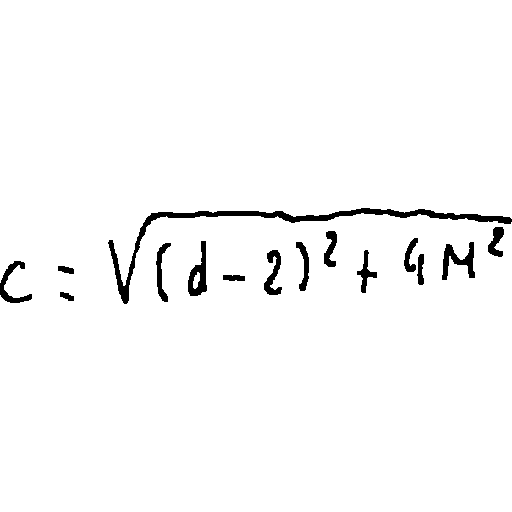 c = √((d - 2)² + 4M²)